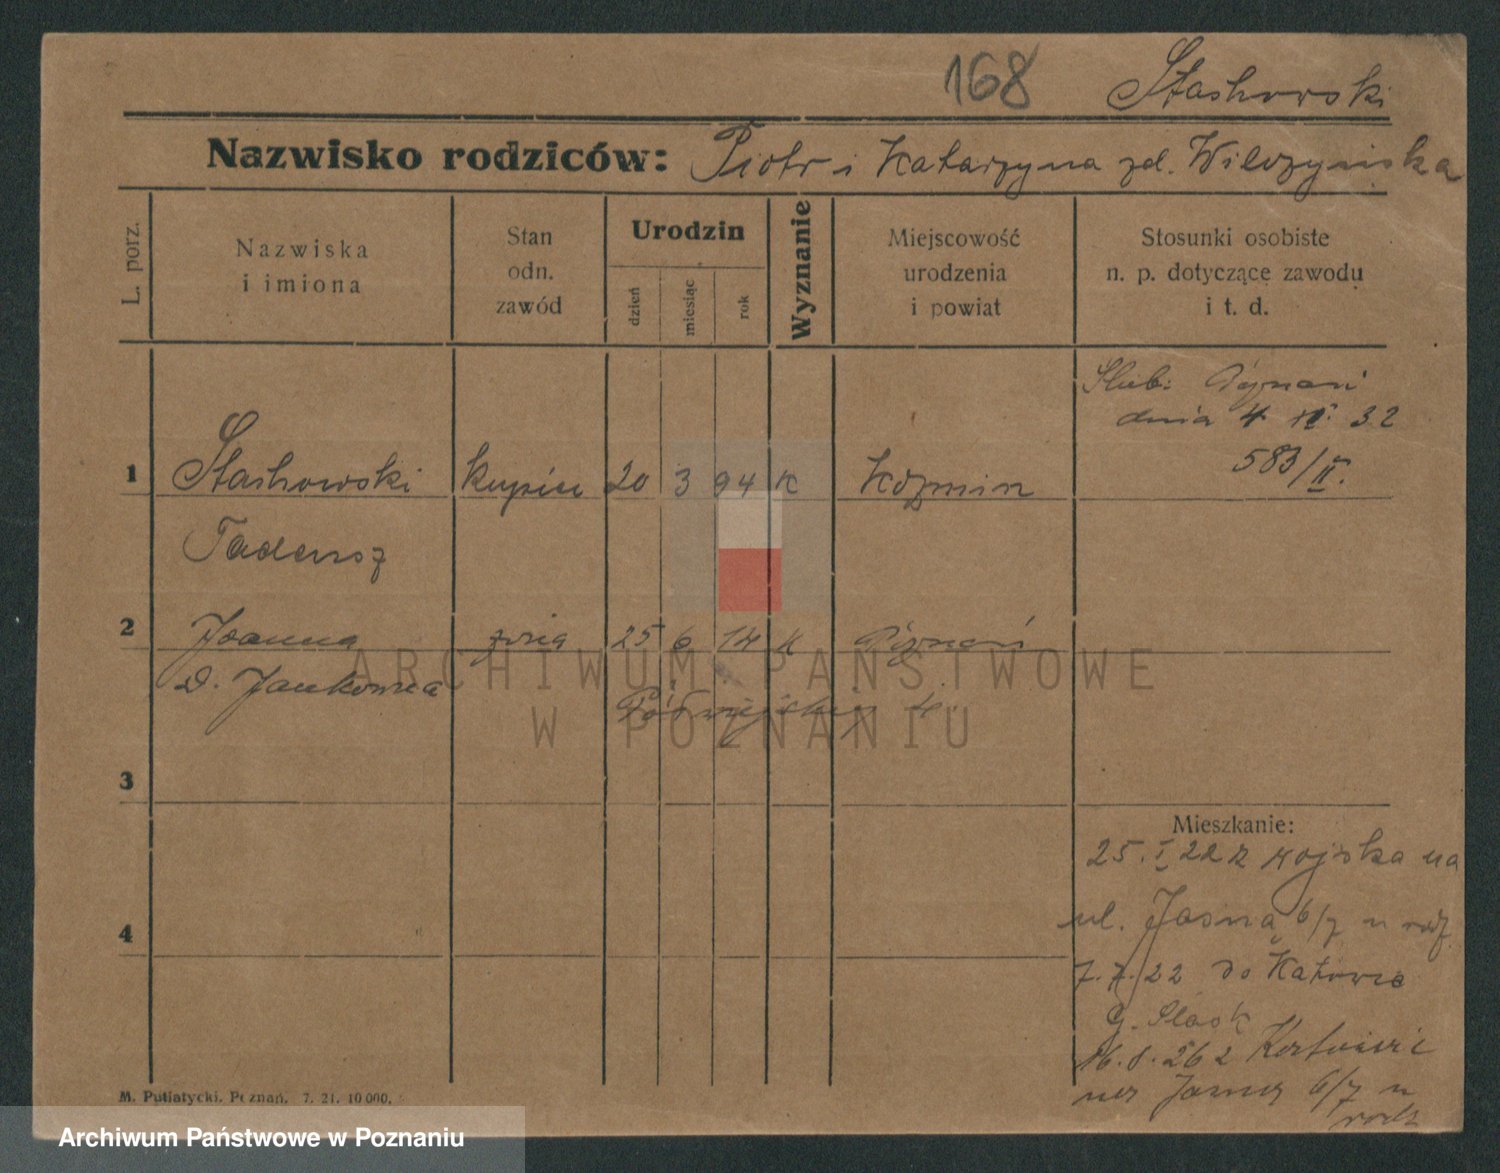 168
Stachowski
Nazwisko rodziców: Piotr i Katarzyna zd. Wilczyńska
L. porz.
Nazwiska
i imiona
Stan
odn.
zawód
Urodzin
dzień
miesiąc
rok
Wyznanie
Miejscowość
urodzenia
i powiat
Stosunki osobiste
n. p. dotyczące zawodu
i t. d.
Ślub: Poznań
dnia 4. 32
583/II.
1 Stachowski kupiec 20 3 94 K Koźmin
Tadeusz
2 Joanna żona 25 6 14 K Poznań
D. Jankowska
Półwiejska
3
4
Mieszkanie:
25. I 22 z wojska na
ul. Jasna 6/7 u rodz.
7.7.22 do Katowic
G. Śląsk
16.8.26 z
na Jasną 6/7 u
rodz
M. Putiatycki. Poznań. 7. 21. 10 000.
ARCHIWUM PAŃSTWOWE
W POZNANIU
Archiwum Państwowe w Poznaniu